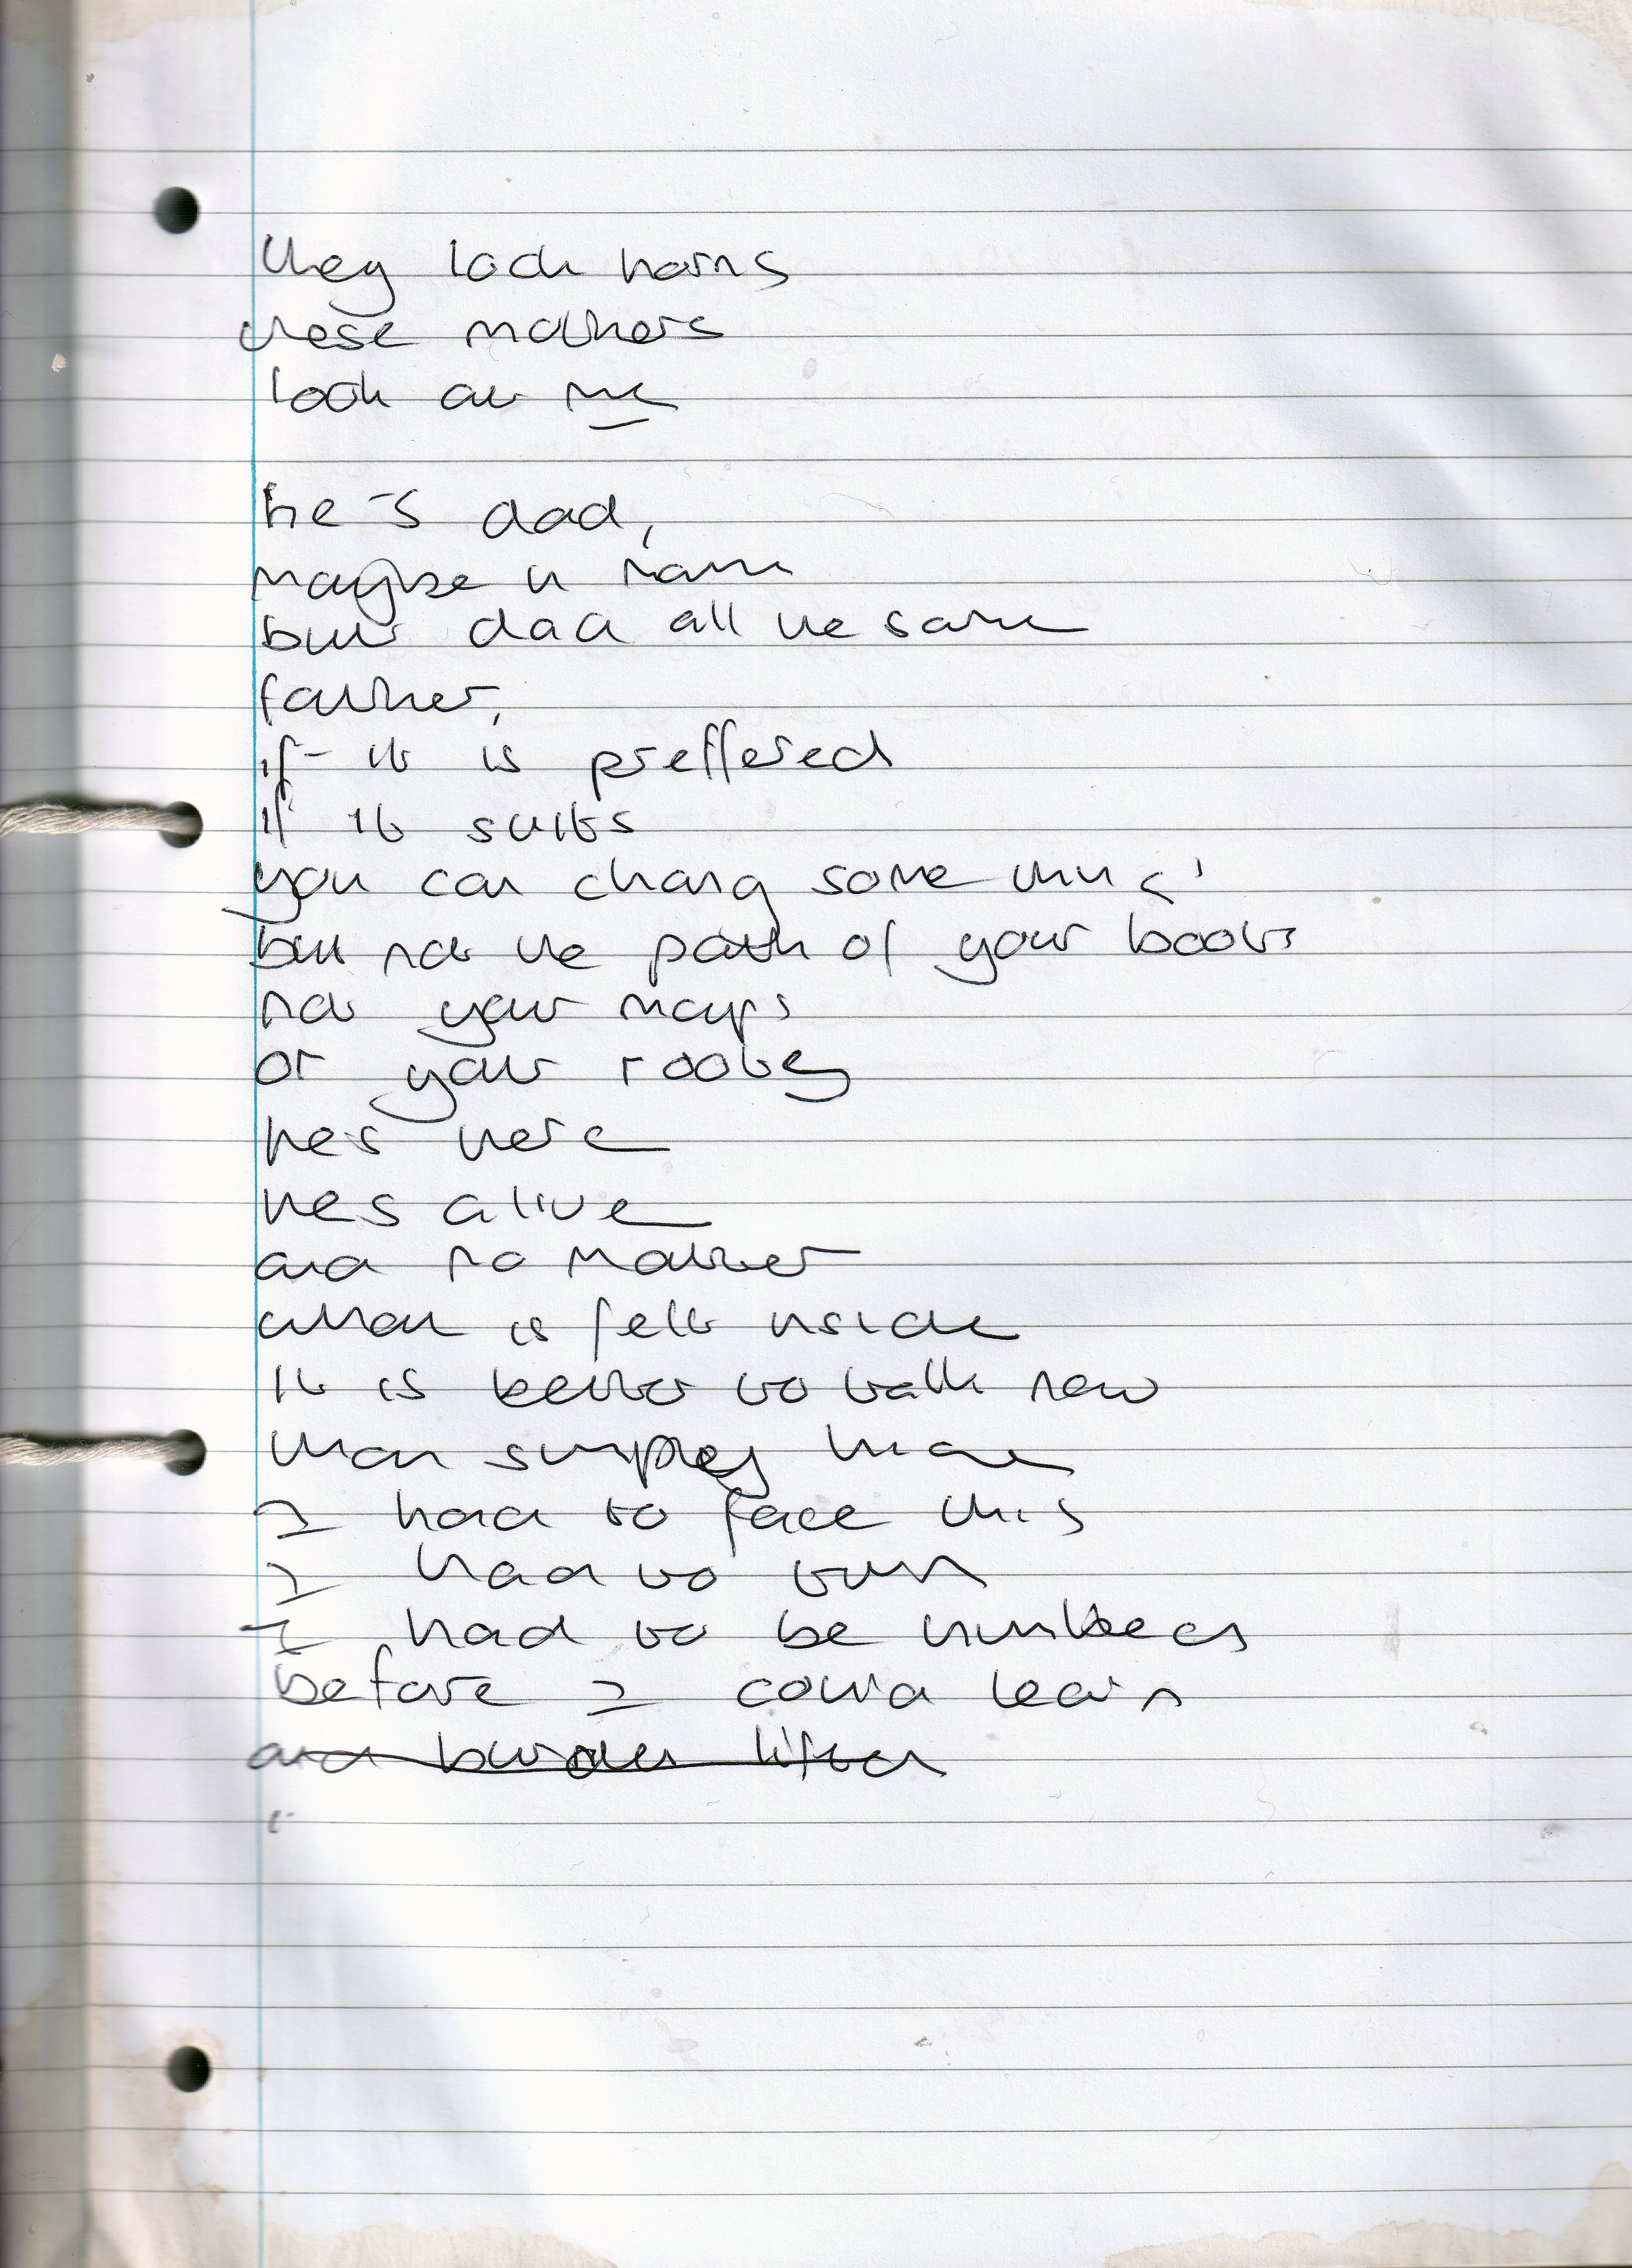 they lock horns
these mothers
look at me
he's dad,
maybe in name
but dad all the same
father,
if it is preffered
if it suits
you can chang some things
but not the path of your boots
not your maps
or your roots
hes here
hes alive
and no matter
what is felt inside
it is better to talk now
than simply
I had to face this
I had to turn
I had to be
before I could learn
and burden lifted